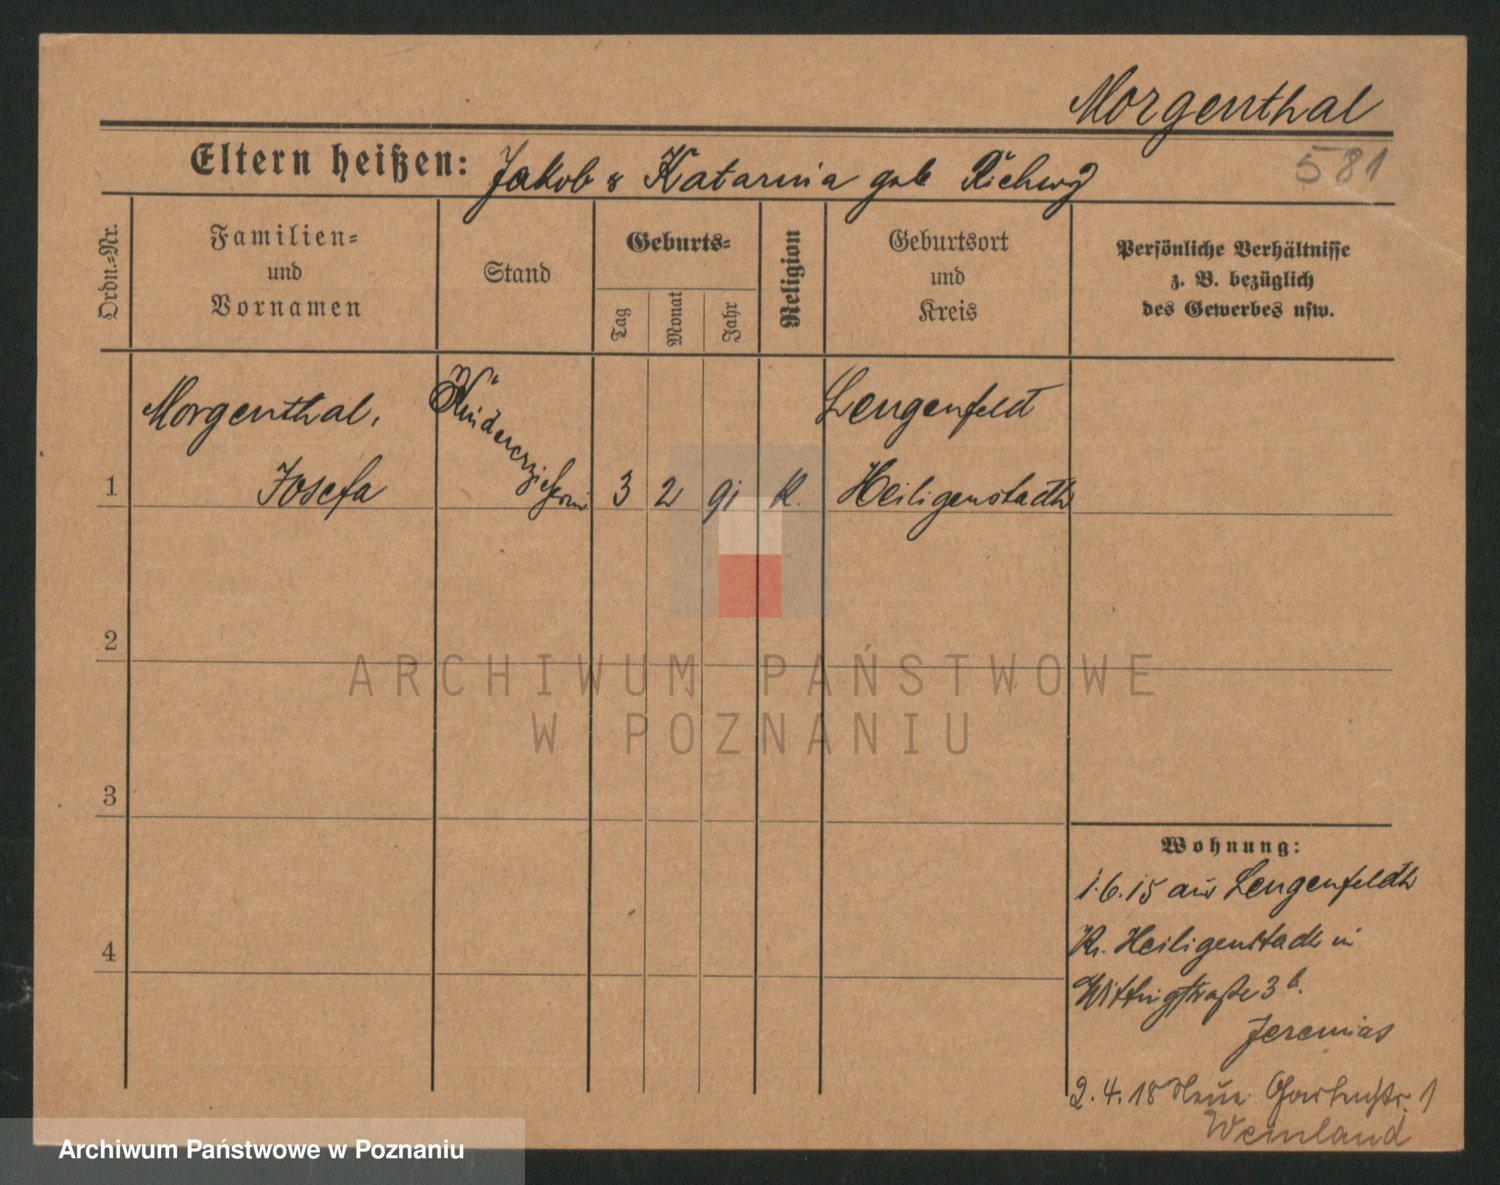 Morgenthal
581
Eltern heißen: Jakob & Katarina geb Richwg
Ordn.=Nr.
Familien=
und
Vornamen
Stand
Geburts=
Tag
Monat
Jahr
Religion
Geburtsort
und
Kreis
Persönliche Verhältnisse
z. B. bezüglich
des Gewerbes usw.
1
Morgenthal,
Josefa
Kindererzieherin
3 2 91 K.
Lengenfeld
Heiligenstadt
2
3
4
Wohnung:
1.6.15 aus Lengenfeldt
Kr. Heiligenstadt in
3 b.
Jeremias
2.4.18 Neue Gartenstr. 1
Weinland
ARCHIWUM PAŃSTWOWE
W POZNANIU
Archiwum Państwowe w Poznaniu